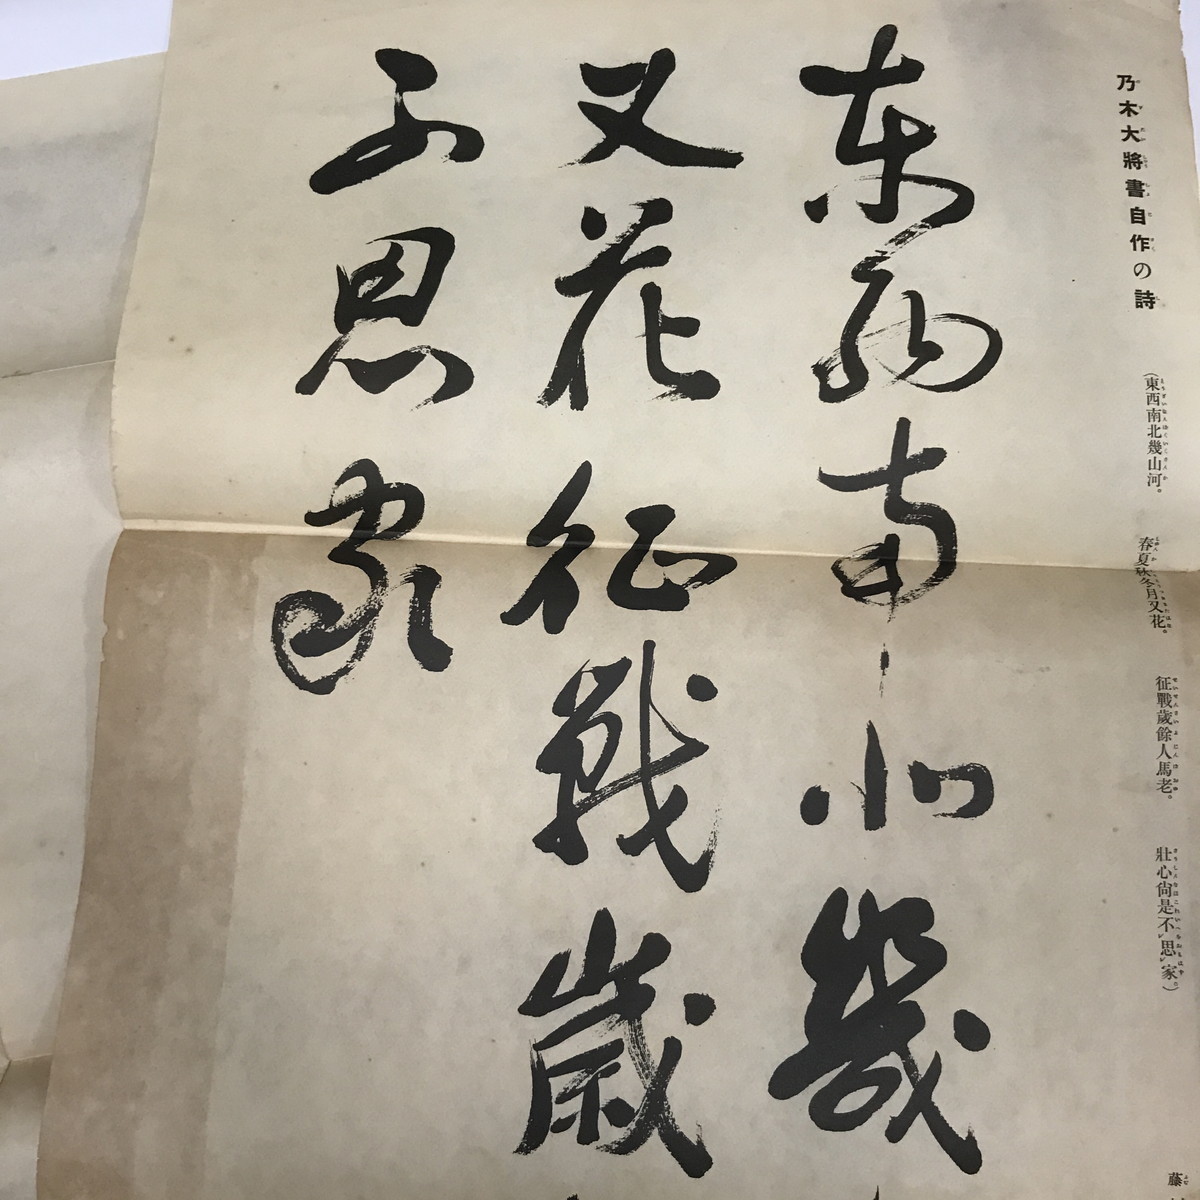 乃木大將書自作の詩
(東西南北幾山河。 春夏秋冬月又花。 征戰歲餘人馬老。 壯心尙是不思家。)
藤
東西南北幾
又花征戰歲
不思家